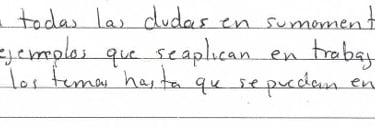 todas las dudas en sumoment
ejemplos que seaplican en trabaj
los temas hasta que se puedan en